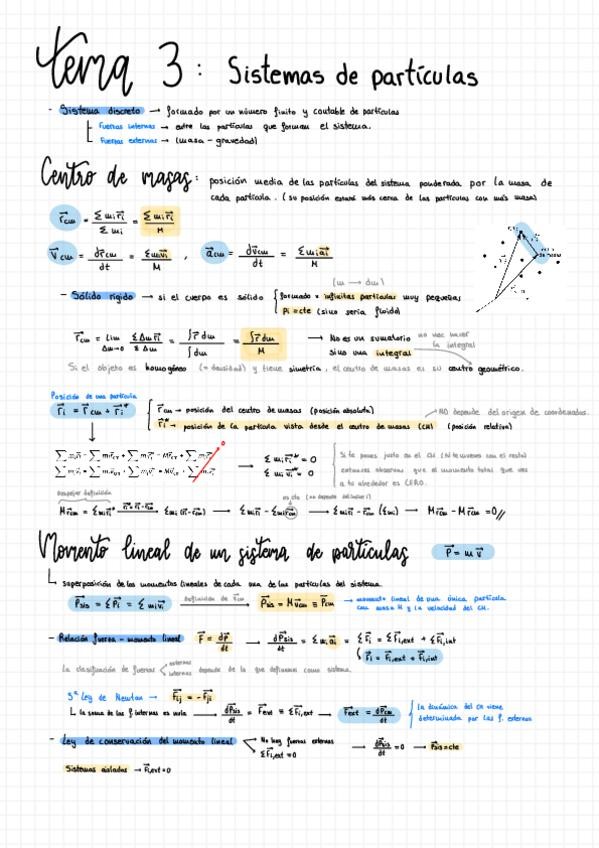 tema 3: Sistemas de partículas
- Sistema discreto → formado por un número finito y contable de partículas
Fuerzas internas → entre las partículas que forman el sistema.
Fuerzas externas → (masa - gravedad)
Centro de masas: posición media de las partículas del sistema ponderada por la masa de
cada partícula. (su posición estará más cerca de las partículas con más masa)
r⃗cm = Σmi r⃗i / Σmi = Σmi r⃗i / M
v⃗cm = dr⃗cm / dt = Σmi v⃗i / M , a⃗cm = dv⃗cm / dt = Σmi a⃗i / M
(m → dm)
- Sólido rígido → si el cuerpo es sólido { formado × infinitas partículas muy pequeñas
ρi = cte (sino sería fluido)
r⃗cm = lim Δm→0 Σ Δm r⃗i / Σ Δm = ∫r⃗ dm / ∫dm = ∫r⃗ dm / M → No es un sumatorio
sino una integral
no vac hacer la integral
Si el objeto es homogéneo (= densidad) y tiene simetría, el centro de masas es su centro geométrico.
Posición de una partícula
r⃗i = r⃗cm + r⃗i* { r⃗cm → posición del centro de masas (posición absoluta)
r⃗i* → posición de la partícula vista desde el centro de masas (CM) (posición relativa)
NO depende del origen de coordenadas.
→ Σmi r⃗i* = 0
Σmi v⃗i* = 0
Si te pones justo en el CM (te mueves con el resto)
entonces observas que el momento total que ves
a tu alrededor es CERO.
Despejar definición
es cte (no depende del índice i)
→ Σmi r⃗i - Σmi r⃗cm → Σmi r⃗i - r⃗cm (Σmi) → M r⃗cm - M r⃗cm = 0 //
Momento lineal de un sistema de partículas p⃗ = m v⃗
superposición de los momentos lineales de cada una de las partículas del sistema.
P⃗sis = ΣP⃗i = Σmi v⃗i definición de v⃗cm → P⃗sis = M v⃗cm ≡ P⃗cm → momento lineal de una única partícula
con masa M y la velocidad del CM.
- Relación fuerza - momento lineal F⃗ = dp⃗ / dt → dP⃗sis / dt = Σmi a⃗i = ΣF⃗i = ΣF⃗i,ext + ΣF⃗i,int
F⃗i = F⃗i,ext + F⃗i,int
La clasificación de fuerzas externas
internas depende de lo que definamos como sistema.
3ª Ley de Newton → F⃗ij = -F⃗ji
la suma de las f internas es nula → dP⃗sis / dt = F⃗ext = ΣF⃗i,ext → F⃗ext = dP⃗cm / dt { la dinámica del CM viene
determinada por las f. externas
- Ley de conservación del momento lineal No hay fuerzas externas
ΣF⃗i,ext = 0 → dP⃗sis / dt = 0 → P⃗sis = cte
Sistemas aislados → F⃗i,ext = 0